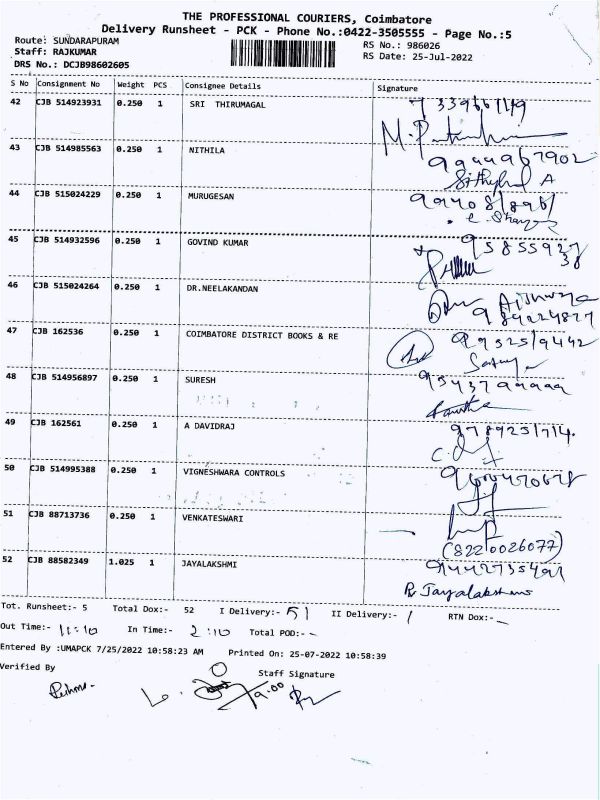 THE PROFESSIONAL COURIERS, Coimbatore
Delivery Runsheet - PCK - Phone No.:0422-3505555 - Page No.:5
Route: SUNDARAPURAM
Staff: RAJKUMAR
DRS No.: DCJB98602605
RS No.: 986026
RS Date: 25-Jul-2022
S No Consignment No Weight PCS Consignee Details Signature
42 CJB 514923931 0.250 1 SRI THIRUMAGAL
43 CJB 514985563 0.250 1 NITHILA
9944967902
44 CJB 515024229 0.250 1 MURUGESAN
45 CJB 514932596 0.250 1 GOVIND KUMAR
95855927
38
46 CJB 515024264 0.250 1 DR.NEELAKANDAN
Aishwarya
47 CJB 162536 0.250 1 COIMBATORE DISTRICT BOOKS & RE
9952519442
48 CJB 514956897 0.250 1 SURESH
9543799999
49 CJB 162561 0.250 1 A DAVIDRAJ
9789251714.
50 CJB 514995388 0.250 1 VIGNESHWARA CONTROLS
51 CJB 88713736 0.250 1 VENKATESWARI
(8220026077)
52 CJB 88582349 1.025 1 JAYALAKSHMI
9442735491
Tot. Runsheet:- 5 Total Dox:- 52 I Delivery:- 51 II Delivery:- 1 RTN Dox:-
Out Time:- 11:10 In Time:- 2:10 Total POD:-
Entered By :UMAPCK 7/25/2022 10:58:23 AM Printed On: 25-07-2022 10:58:39
Verified By Staff Signature
9.00